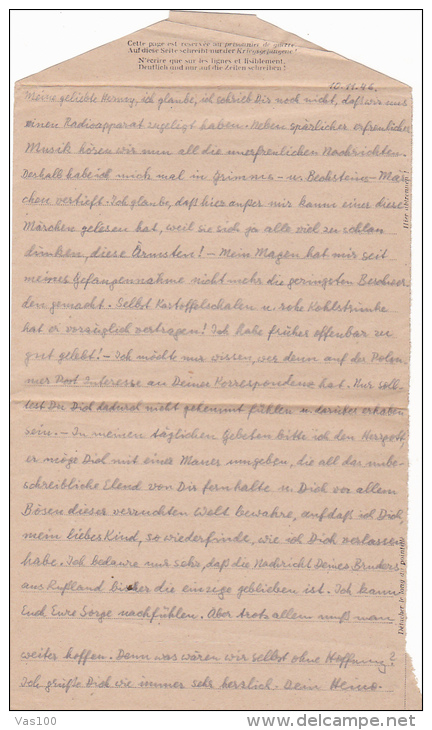 Cette page est réservée au prisonnier de guerre.
Auf diese Seite schreibt nur der Kriegsgefangene!
N'écrire que sur les lignes et lisiblement.
Deutlich und nur auf die Zeilen schreiben!
10.11.46.
Meine geliebte ich glaube, ich schrieb Dir noch nicht, daß wir uns
einen Radioapparat zugelegt haben. Neben spärlicher erfreulicher
Musik hören wir nun all die unerfreulichen Nachrichten.
Deshalb habe ich mich mal in Grimms- u. Bechsteins-Mär-
chen vertieft. Ich glaube, daß hier außer mir kaum einer diese
Märchen gelesen hat, weil sie sich ja alle viel zu schlau
dünken, diese Ärmsten! - Mein Magen hat mir seit
meiner Gefangennahme nicht mehr die geringsten Beschwer-
den gemacht. Selbst Kartoffelschalen u. rohe Kohlstrünke
hat er vorzüglich vertragen! Ich habe früher offenbar zu
gut gelebt! - Ich möchte nur wissen, wer denn auf der
Post Interesse an Deiner Korrespondenz hat. Nur soll-
test Du Dich dadurch nicht gehemmt fühlen u. darüber erhaben
sein. - In meinen täglichen Gebeten bitte ich den Herrgott,
er möge Dich mit einer Mauer umgeben, die all das unbe-
schreibliche Elend von Dir fernhalte u. Dich vor allem
Bösen dieser verruchten Welt bewahre, auf daß ich Dich,
mein liebes Kind, so wiederfinde, wie ich Dich verlassen
habe. Ich bedaure nur sehr, daß die Nachricht Deines Bruders
aus Rußland bisher die einzige geblieben ist. Ich kann
Euch Eure Sorge nachfühlen. Aber trotz allem muß man
weiter hoffen. Denn was wären wir selbst ohne Hoffnung?
Ich grüße Dich wie immer sehr herzlich. Dein Heino.
Hier abtrennen!
Détacher le long du pointillé
Vas100
delcampe.net